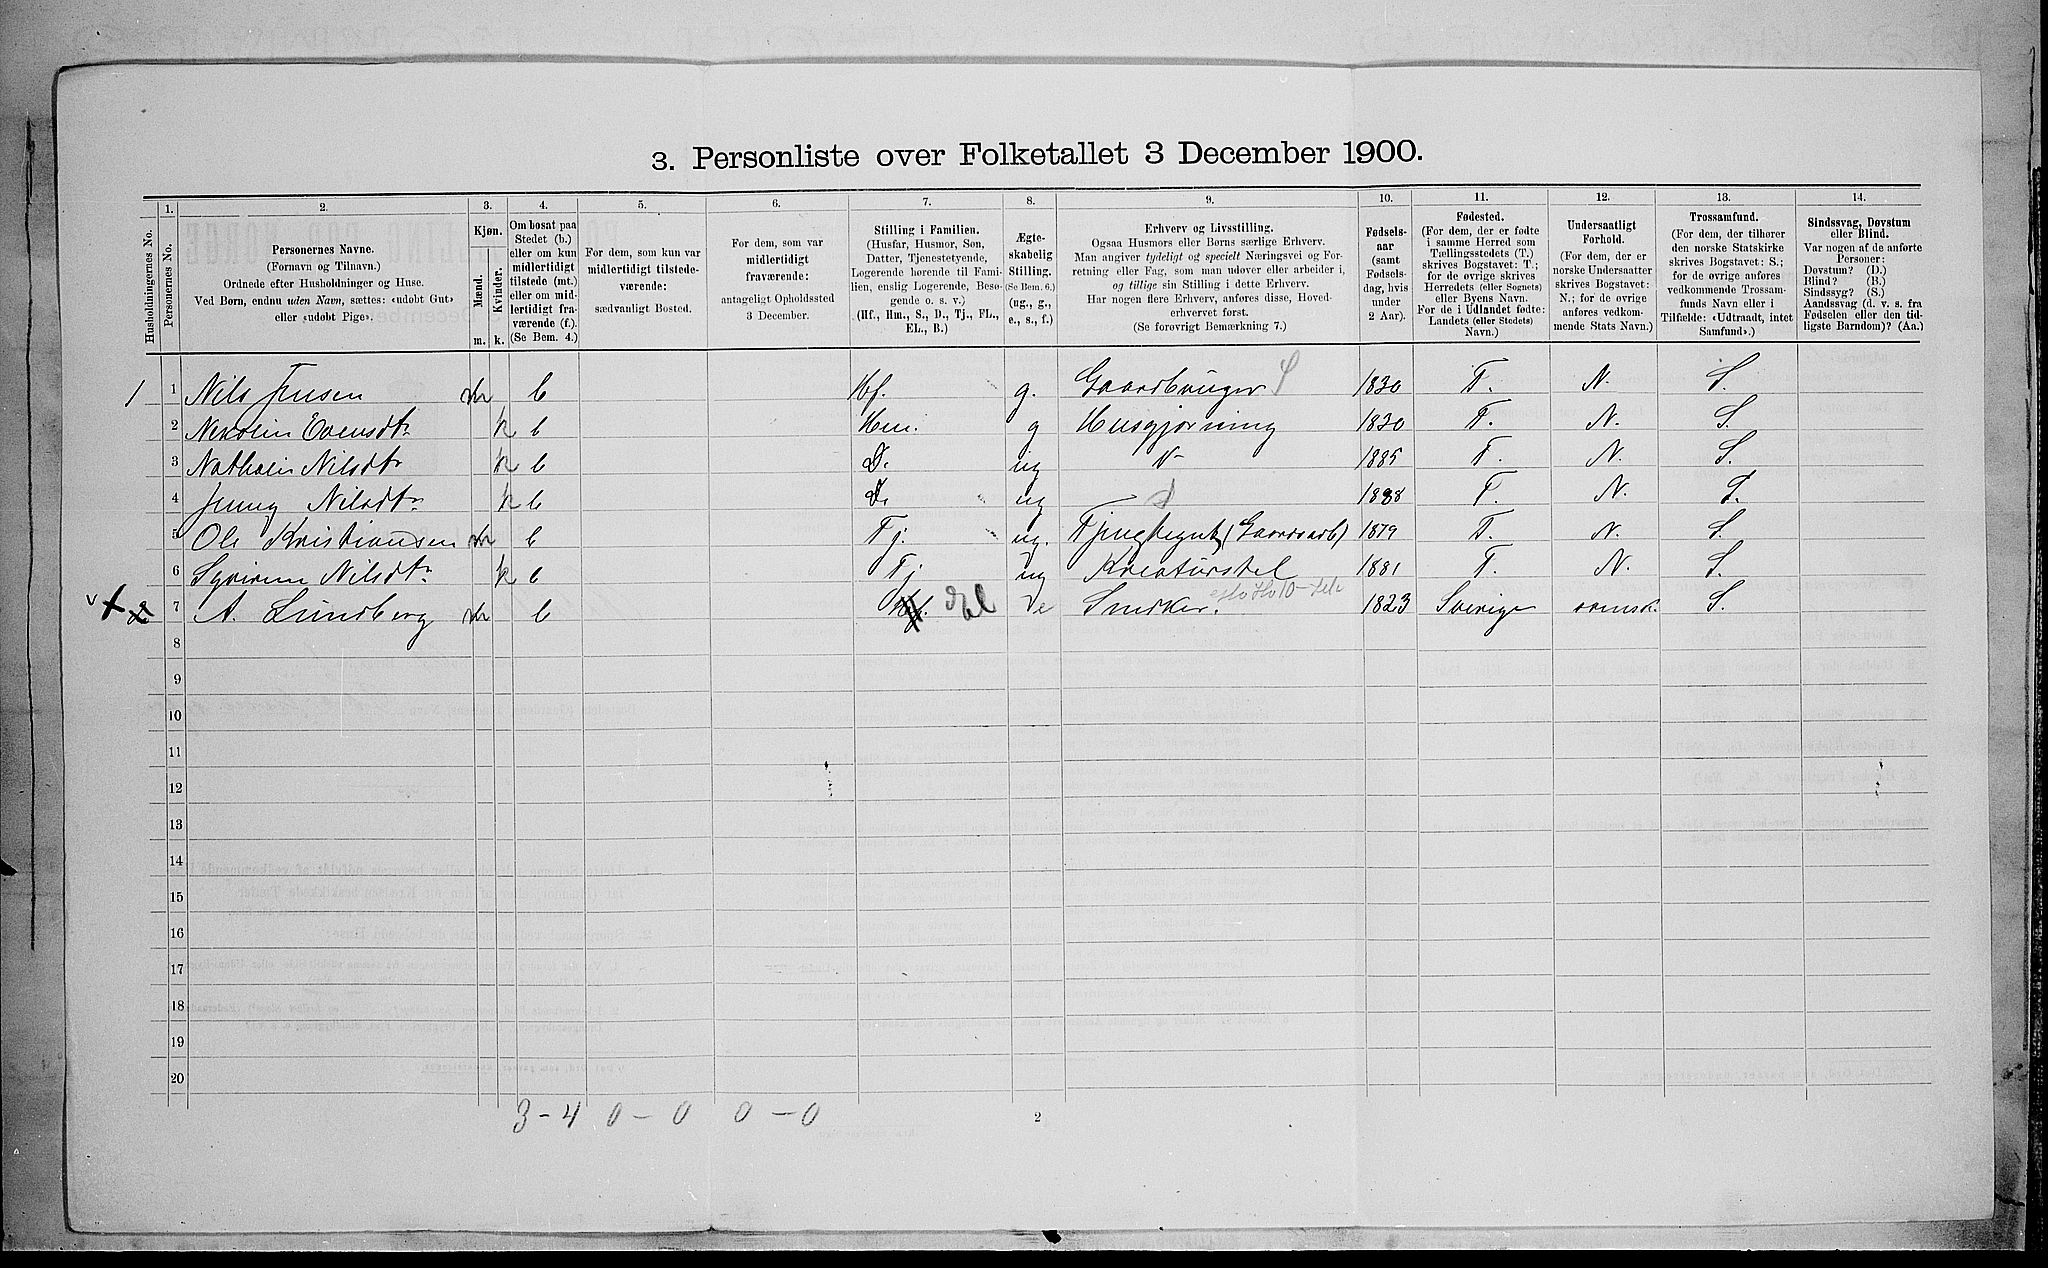 3. Personliste over Folketallet 3 December 1900.
Husholdningernes No.
1.
Personernes No.
2.
Personernes Navne.
(Fornavn og Tilnavn.)
Ordnede efter Husholdninger og Huse.
Ved Børn, endnu uden Navn, sættes: «udøbt Gut»
eller «udøbt Pige».
3.
Kjøn.
Mænd.
Kvinder.
m.
k.
4.
Om bosat paa
Stedet (b.)
eller om kun
midlertidigt
tilstede (mt.)
eller om mid-
lertidigt fra-
værende (f.).
(Se Bem. 4.)
5.
For dem, som kun var
midlertidigt tilstede-
værende:
sædvanligt Bosted.
6.
For dem, som var
midlertidigt
fraværende:
antageligt Opholdssted
3 December.
7.
Stilling i Familien.
(Husfar, Husmor, Søn,
Datter, Tjenestetyende,
Logerende hørende til Fami-
lien, enslig Logerende, Besø-
gende o. s. v.)
(Hf., Hm., S., D., Tj., FL.,
EL., B.)
8.
Ægte-
skabelig
Stilling.
(Se Bem. 6.)
(ug., g.,
e., s., f.)
9.
Erhverv og Livsstilling.
Ogsaa Husmors eller Børns særlige Erhverv.
Man angiver tydeligt og specielt Næringsvei og For-
retning eller Fag, som man udøver eller arbeider i,
og tillige sin Stilling i dette Erhverv.
Har nogen flere Erhverv, anføres disse, Hoved-
erhvervet først.
(Se forøvrigt Bemærkning 7.)
10.
Fødsels-
aar
(samt
Fødsels-
dag, hvis
under
2 Aar).
11.
Fødested.
(For dem, der er fødte
i samme Herred som
Tællingsstedets (T.)
skrives Bogstavet: T.;
for de øvrige skrives
Herredets (eller Sognets)
eller Byens Navn.
For de i Udlandet fødte:
Landets (eller Stedets)
Navn.)
12.
Undersaatligt
Forhold.
(For dem, der er
norske Undersaatter
skrives Bogstavet:
N.; for de øvrige
anføres vedkom-
mende Stats Navn.)
13.
Trossamfund.
(For dem, der tilhører
den norske Statskirke
skrives Bogstavet: S.;
for de øvrige anføres
vedkommende Trossam-
funds Navn eller i
Tilfælde: «Udtraadt, intet
Samfund».)
14.
Sindssvag, Døvstum
eller Blind.
Var nogen af de anførte
Personer:
Døvstum? (D.)
Blind? (B.)
Sindssyg? (S.)
Aandssvag (d. v. s. fra
Fødselen eller den tid-
ligste Barndom)? (Aa.)
1 1 Nils Jensen m b Hf. g. Gaardbruger S 1830 T. N. S.
2 Evensdtr k b Hm. g Husgjørning 1830 T. N. S.
3 Nathalie Nilsdtr k b D. ug 1885 T. N. S.
4 Jenny Nilsdtr k b D. ug 1888 T. N. S.
5 Ole Kristiansen m b Tj. ug. (Gaardsarb) 1879 T. N. S.
6 Nilsdtr k b Tj ug Kreaturstel 1881 T. N. S.
7 A. Lundberg m b Hf. el e Snedker. 1823 Sverige svensk. S.
8
9
10
11
12
13
14
15
16
17
18
19
20
3-4 0-0 0-0
2